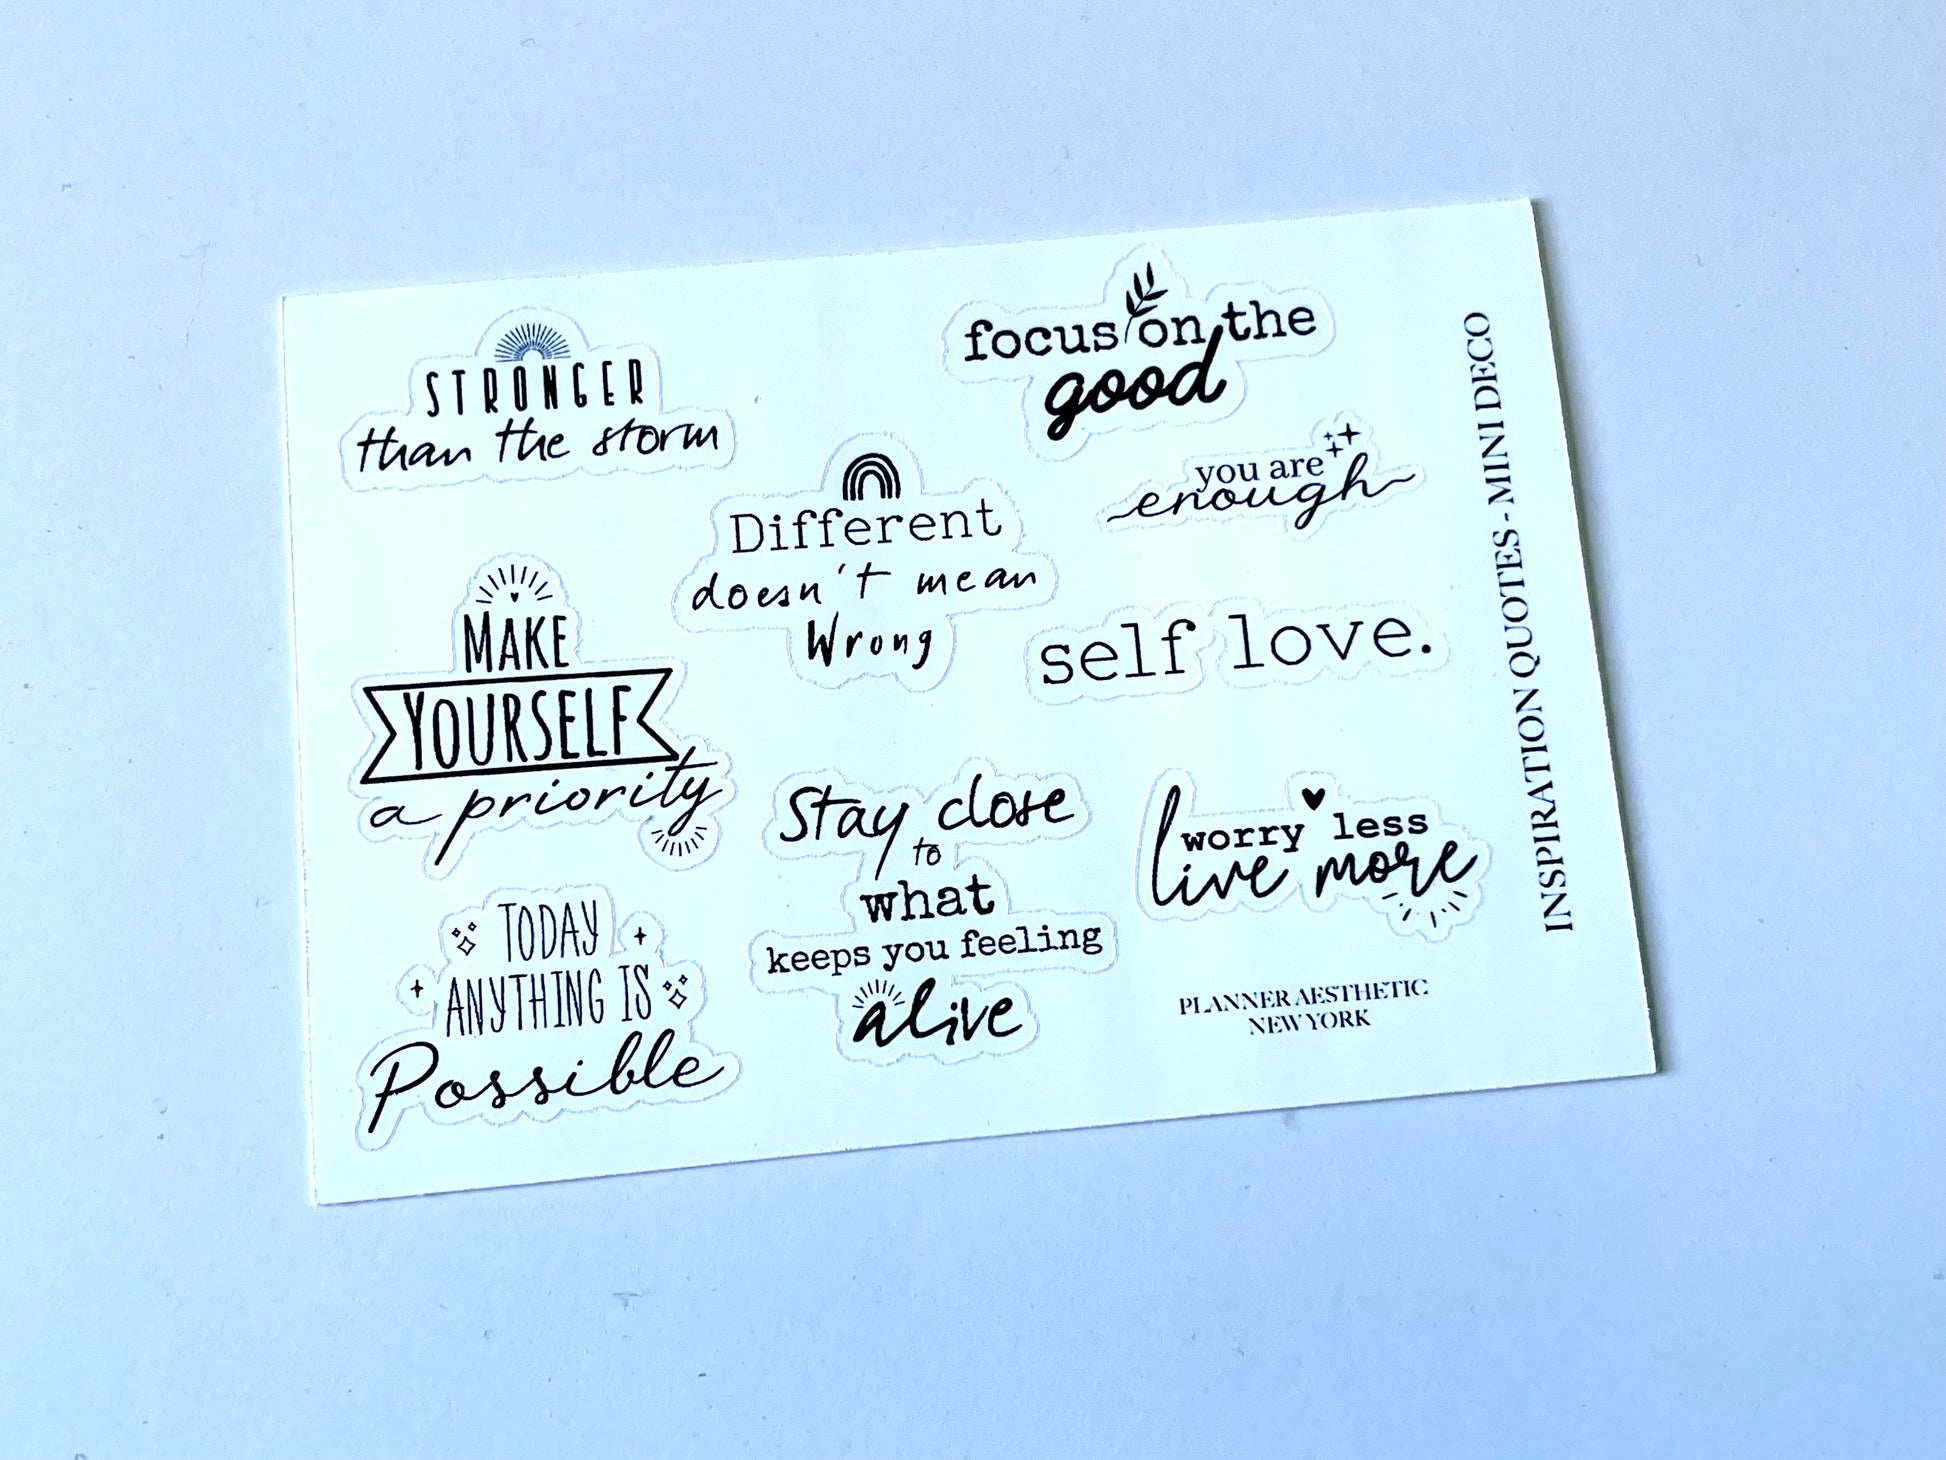 STRONGER
than the storm
focus on the
good
Different
doesn't mean
Wrong
you are
enough
MAKE
YOURSELF
a priority
self love.
Stay close
to
what
keeps you feeling
alive
worry less
live more
TODAY
ANYTHING IS
Possible
PLANNER AESTHETIC
NEW YORK
INSPIRATION QUOTES - MINI DECO